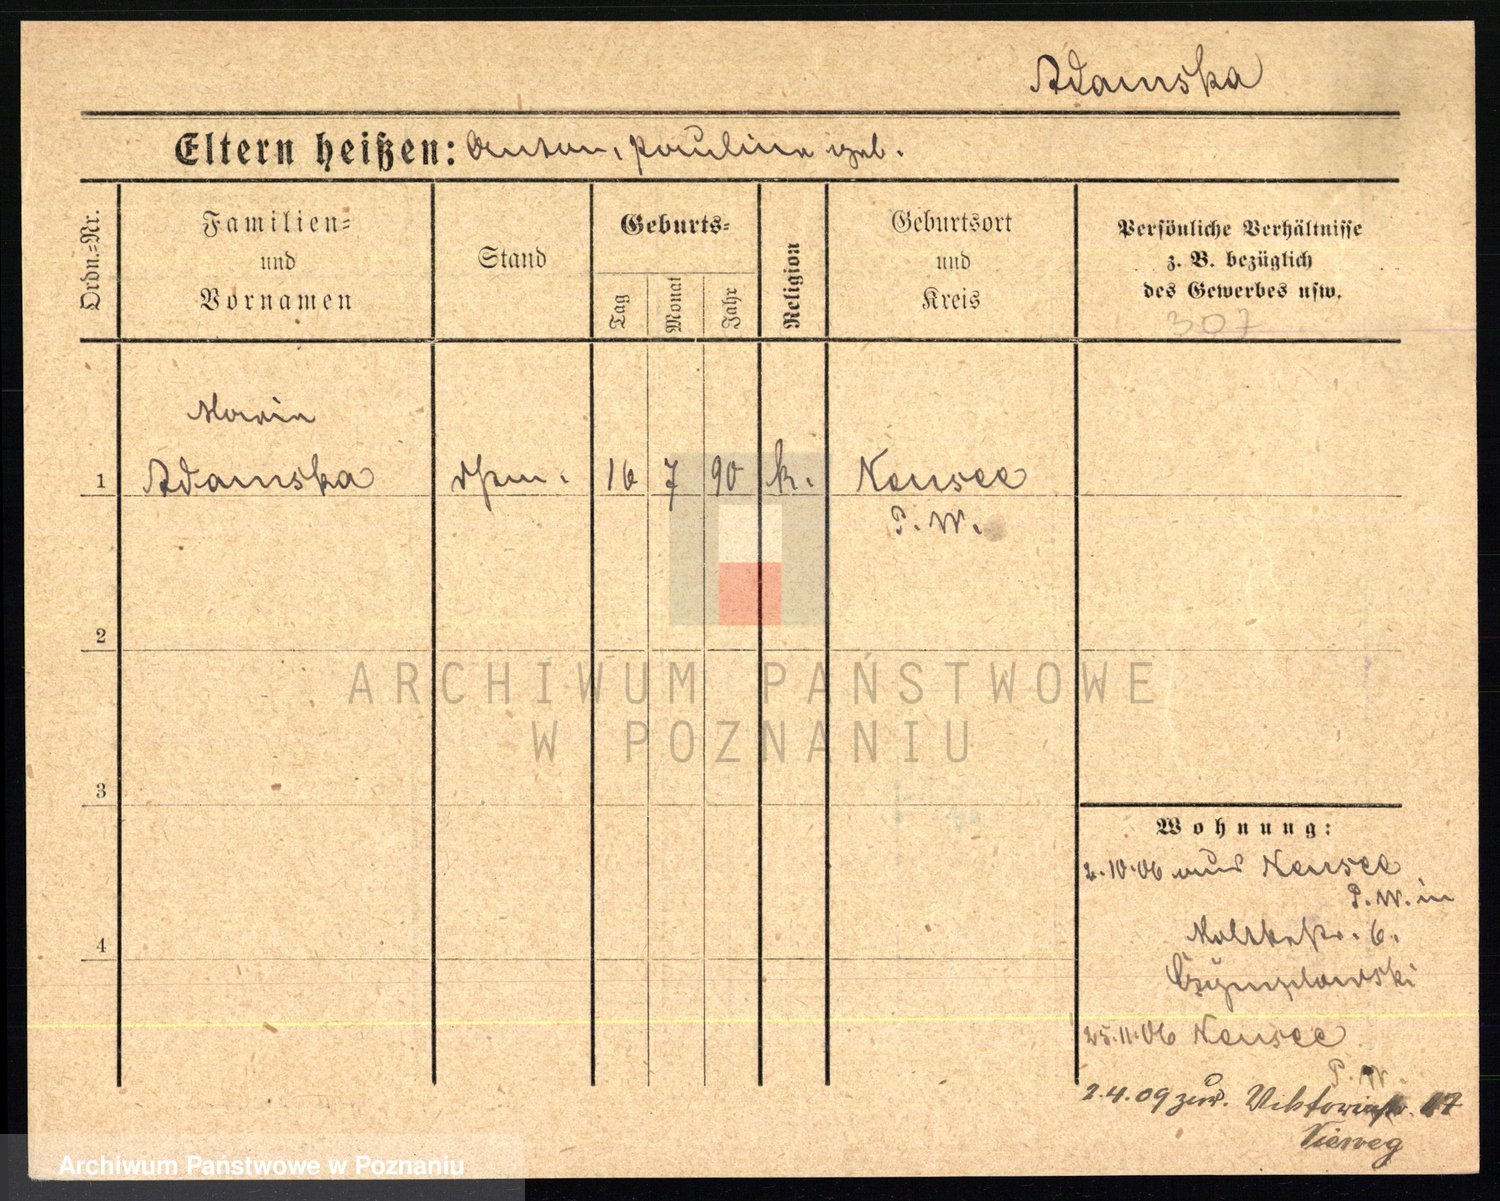 Adamska
Eltern heißen: Anton, Pauline geb.
Ordn.=Nr.
Familien=
und
Vornamen
Stand
Geburts=
Tag
Monat
Jahr
Religion
Geburtsort
und
Kreis
Persönliche Verhältnisse
z. B. bezüglich
des Gewerbes usw.
307
Marie
1 Adamska 16 7 90 k. Neusee
P. W.
2
ARCHIWUM PAŃSTWOWE
W POZNANIU
3
Wohnung:
2.10.06 aus Neusee
P. W. in
Moltkestr. 6.
4
25.11.06 Neusee
P. W.
2.4.09 zur. Viktoriastr. 17
Vieweg
Archiwum Państwowe w Poznaniu